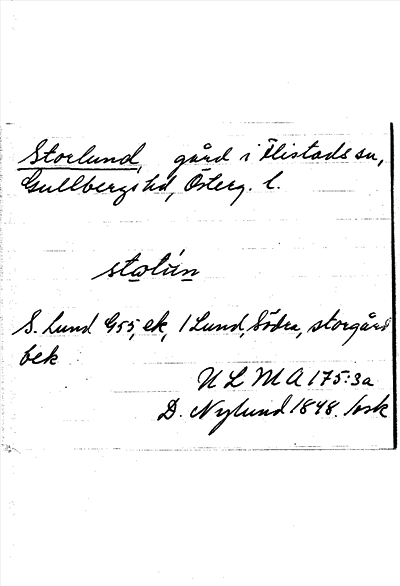 Storlund, gård i Flistads sn,
Gullbergs hd, Österg. l.
stωlún
S. Lund G55, ek, 1 Lund, Södra, storgård
bek
ULMA 175:3a
D. Nylund 1848.